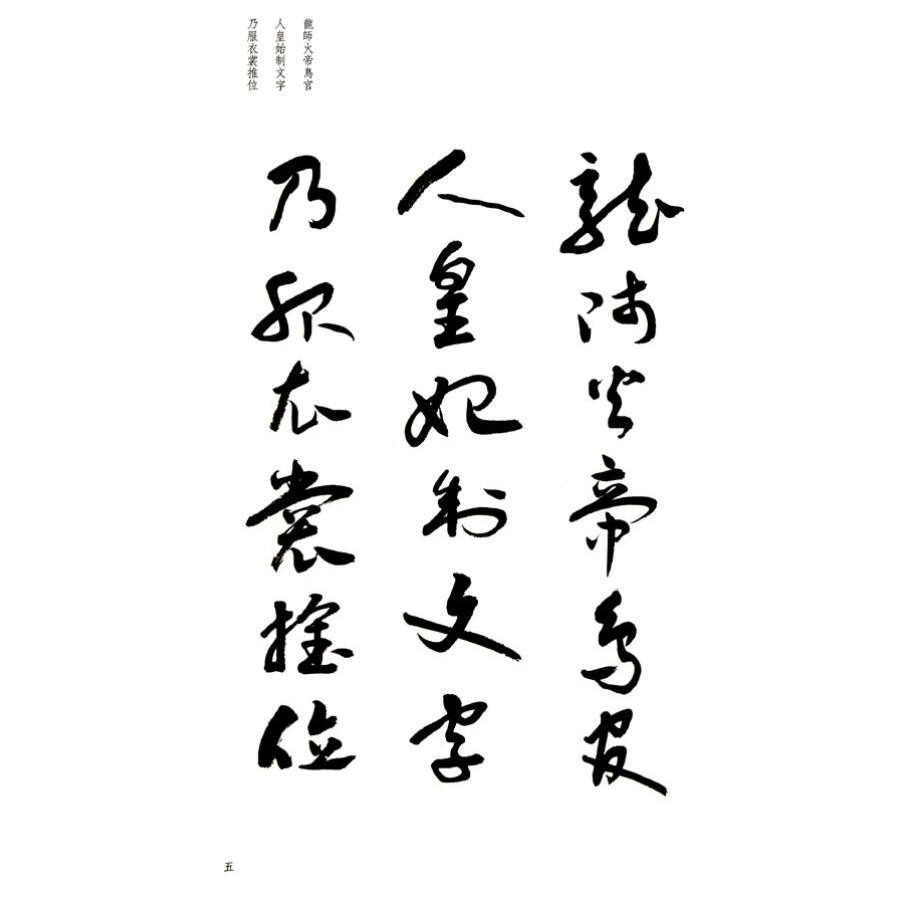 龍師火帝鳥官
人皇始制文字
乃服衣裳推位
龍師火帝鳥官
人皇始制文字
乃服衣裳推位
五